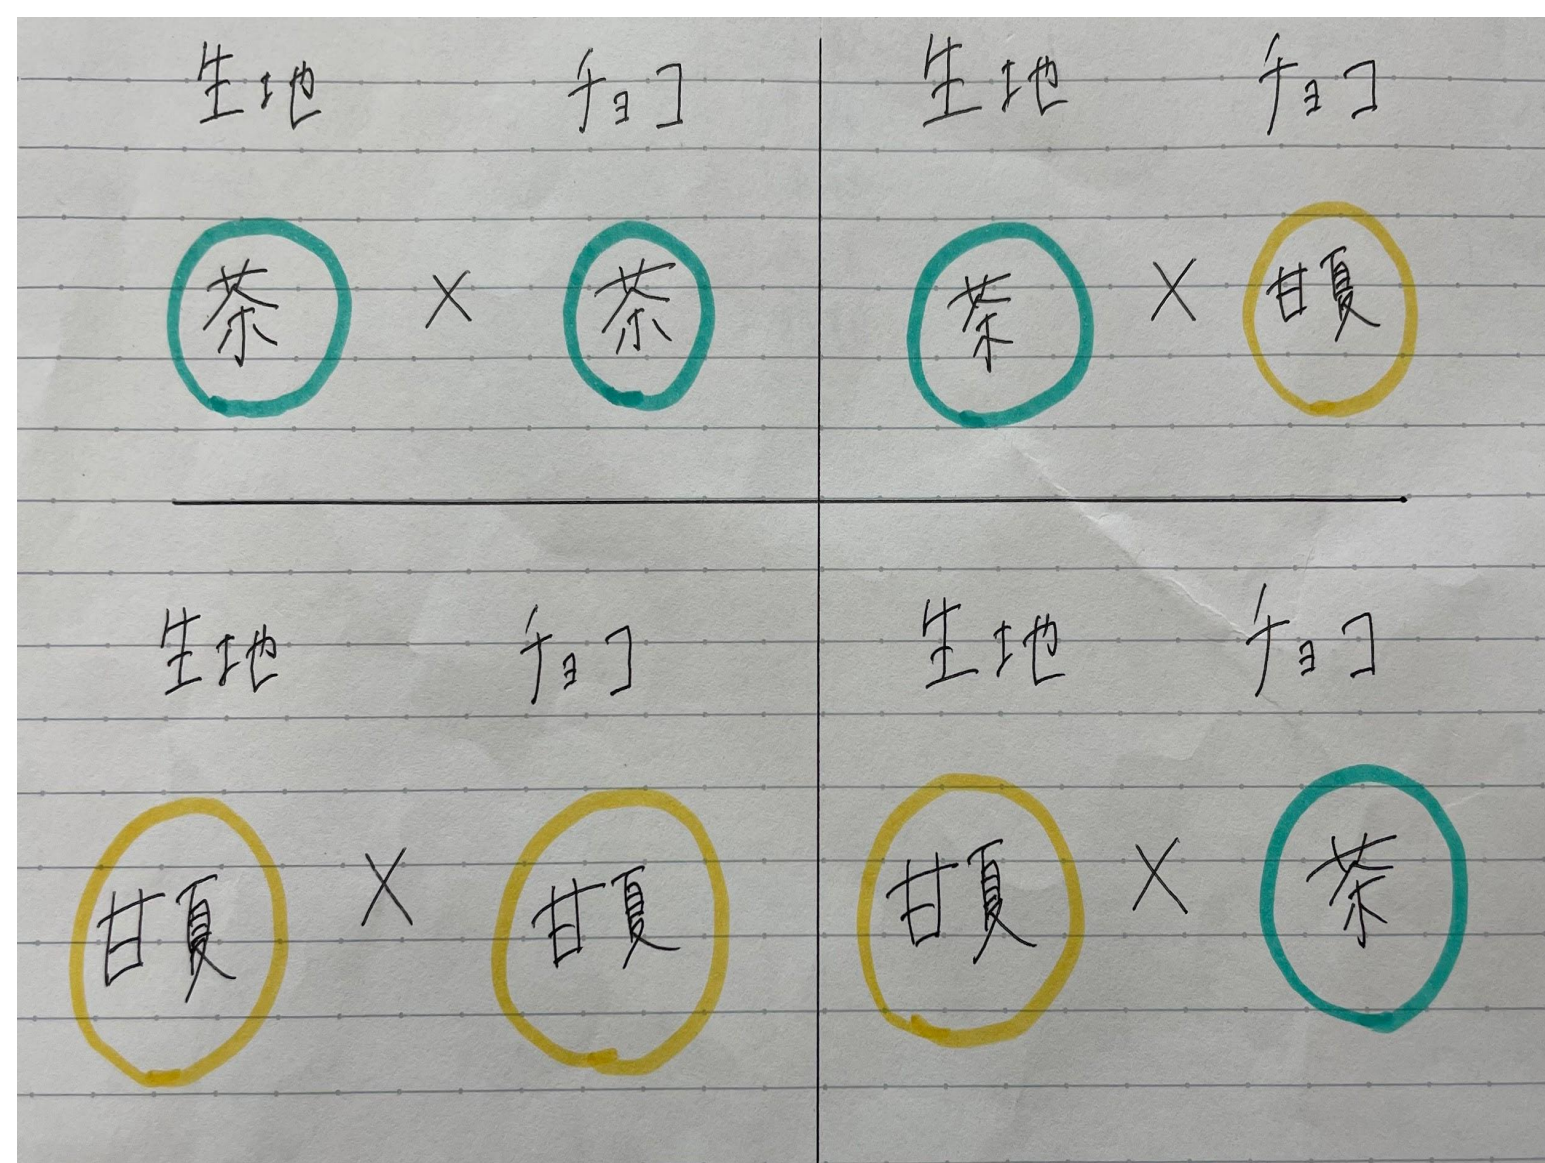 生地 チョコ
茶 × 茶
生地 チョコ
茶 × 甘夏
生地 チョコ
甘夏 × 甘夏
生地 チョコ
甘夏 × 茶